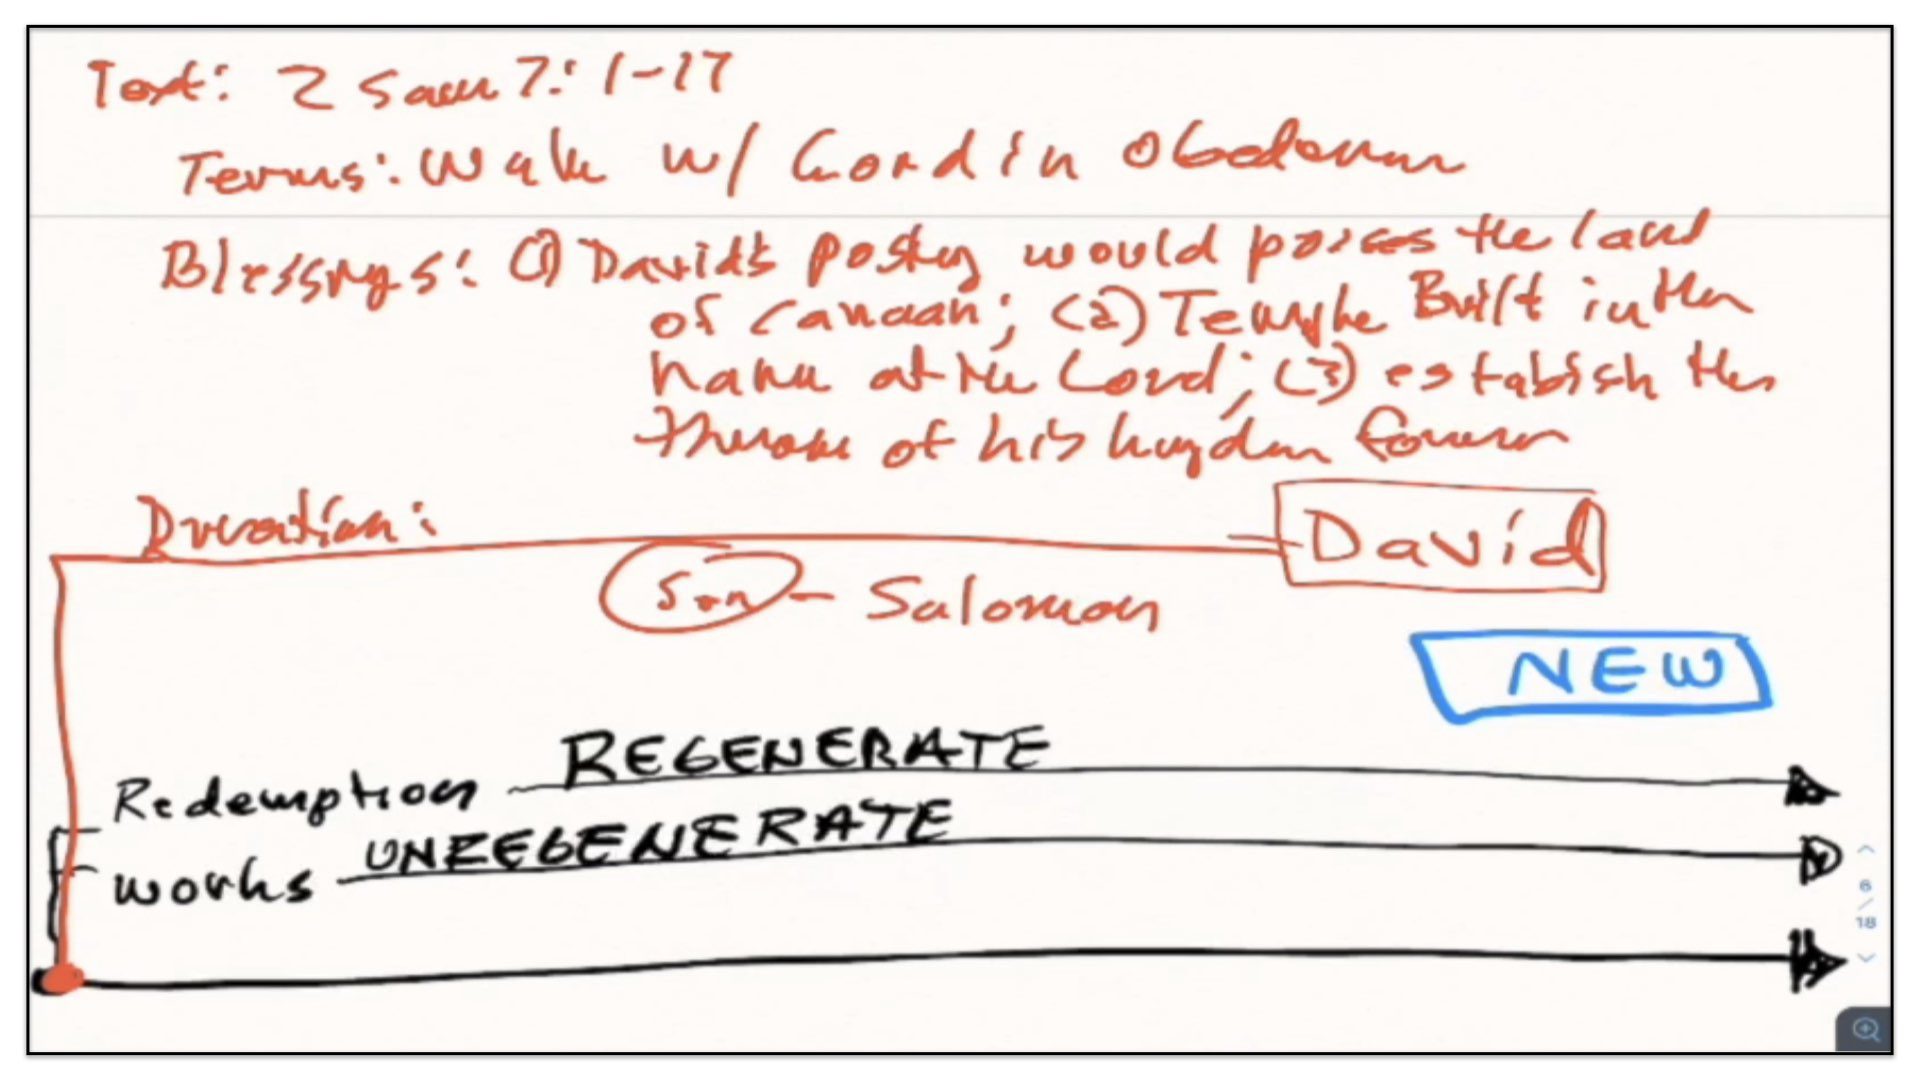 Text: 2 Sam 7: 1-17
Terms: Walk w/ Lord in Obedience
Blessings: (1) David's would posses the land
of Canaan; (2) Temple Built in the
name of the Lord; (3) establish the
throne of his kingdom forever
Duration:
David
Son - Salomon
NEW
REGENERATE
Redemption
UNREGENERATE
works
6
/
18